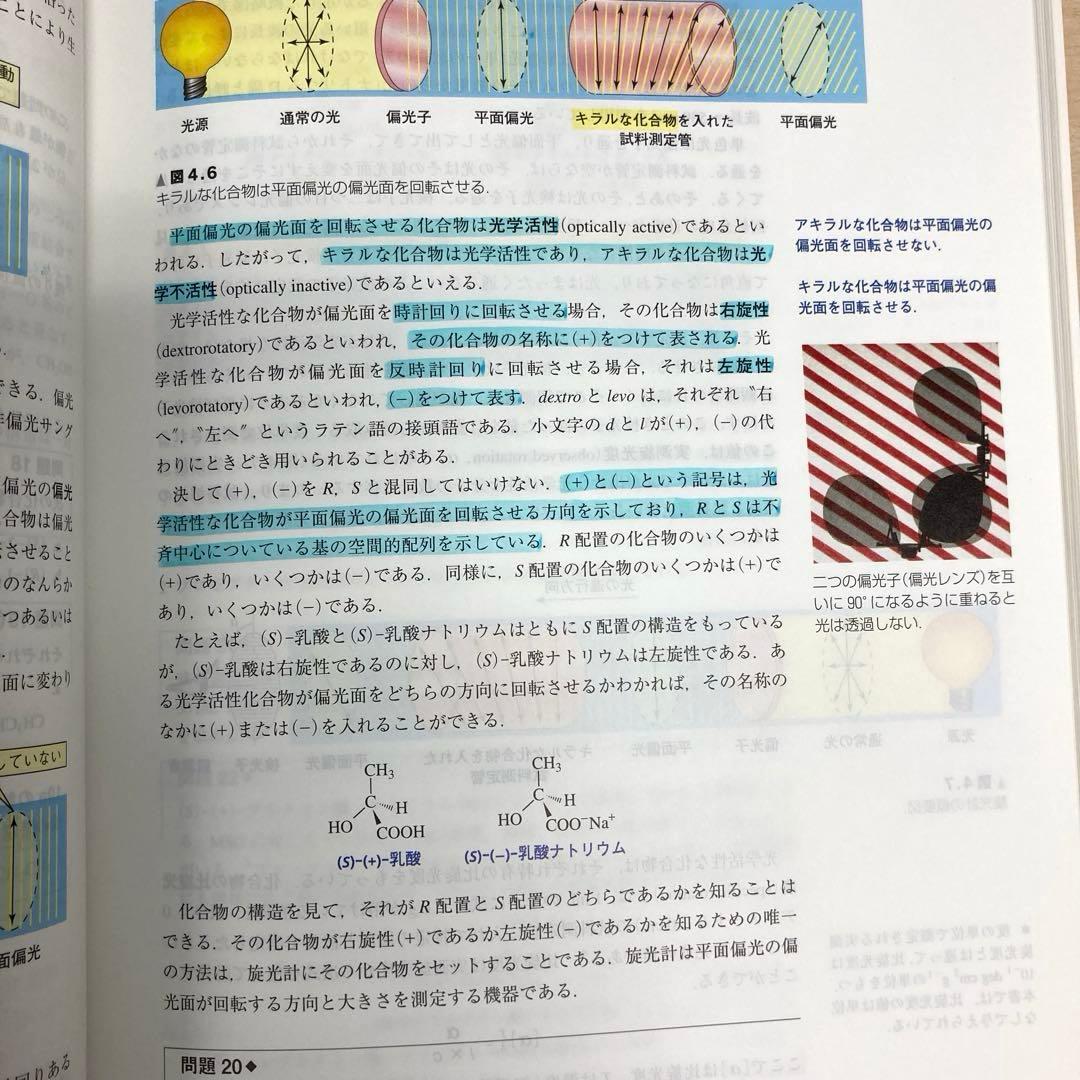 った
ことにより生
動
光源
通常の光
偏光子
平面偏光
キラルな化合物を入れた
試料測定管
平面偏光
▲図4.6
キラルな化合物は平面偏光の偏光面を回転させる.
平面偏光の偏光面を回転させる化合物は光学活性(optically active)であるとい
われる. したがって, キラルな化合物は光学活性であり, アキラルな化合物は光
学不活性(optically inactive)であるといえる.
光学活性な化合物が偏光面を時計回りに回転させる場合, その化合物は右旋性
(dextrorotatory)であるといわれ, その化合物の名称に(+)をつけて表される. 光
学活性な化合物が偏光面を反時計回りに回転させる場合, それは左旋性
(levorotatory)であるといわれ, (−)をつけて表す. dextroとlevoは, それぞれ〝右
へ〟, 〝左へ〟というラテン語の接頭語である. 小文字のdとlが(+), (−)の代
わりにときどき用いられることがある.
決して(+), (−)をR, Sと混同してはいけない. (+)と(−)という記号は, 光
学活性な化合物が平面偏光の偏光面を回転させる方向を示しており, RとSは不
斉中心についている基の空間的配列を示している. R配置の化合物のいくつかは
(+)であり, いくつかは(−)である. 同様に, S配置の化合物のいくつかは(+)で
あり, いくつかは(−)である.
たとえば, (S)-乳酸と(S)-乳酸ナトリウムはともにS配置の構造をもっている
が, (S)-乳酸は右旋性であるのに対し, (S)-乳酸ナトリウムは左旋性である. あ
る光学活性化合物が偏光面をどちらの方向に回転させるかわかれば, その名称の
なかに(+)または(−)を入れることができる.
CH₃
C
H
HO
COOH
(S)-(+)-乳酸
CH₃
C
H
HO
COO⁻Na⁺
(S)-(−)-乳酸ナトリウム
化合物の構造を見て, それがR配置とS配置のどちらであるかを知ることは
できる. その化合物が右旋性(+)であるか左旋性(−)であるかを知るための唯一
の方法は, 旋光計にその化合物をセットすることである. 旋光計は平面偏光の偏
光面が回転する方向と大きさを測定する機器である.
問題 20◆
アキラルな化合物は平面偏光の
偏光面を回転させない.
キラルな化合物は平面偏光の偏
光面を回転させる.
二つの偏光子(偏光レンズ)を互
いに90°になるように重ねると
光は透過しない.
できる. 偏光
偏光サング
偏光の偏光
合物は偏光
させること
のなんらか
つあるいは
面に変わり
していない
面偏光
回りある